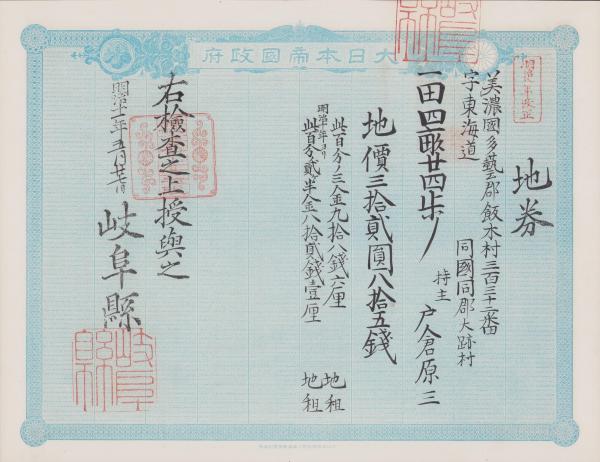 大日本帝國政府
地券
美濃國多藝郡飯木村三百三十二番
字東海道
同國同郡大跡村
一田四畝廿四歩
持主 戸倉原三
地價三拾貳圓八拾五錢
此百分ノ三金九拾八錢六厘 地租
明治十年ヨリ
此百分ノ貳半金八拾貳錢壹厘 地租
右檢査之上授與之
明治十一年五月
岐阜縣